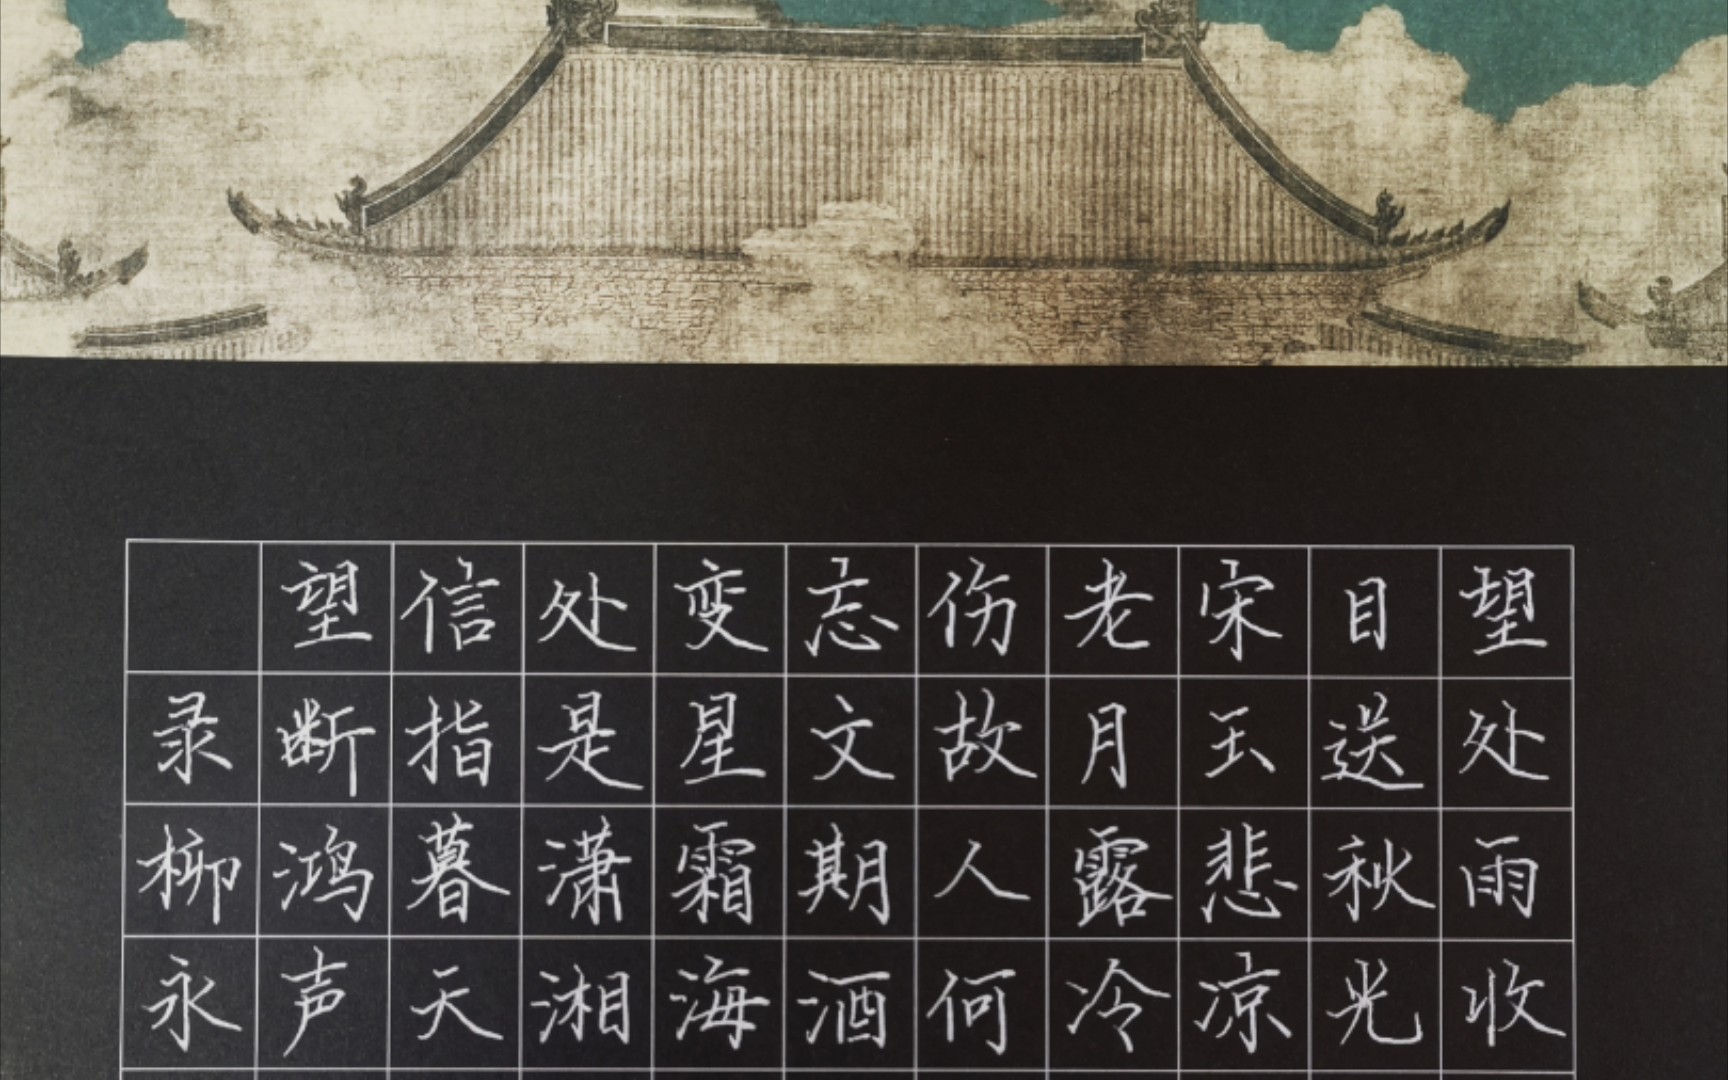 望处雨收
目送秋光
宋玉悲凉
老月露冷
伤故人何
忘文期酒
变星霜海
处是潇湘
信指暮天
望断鸿声
录柳永